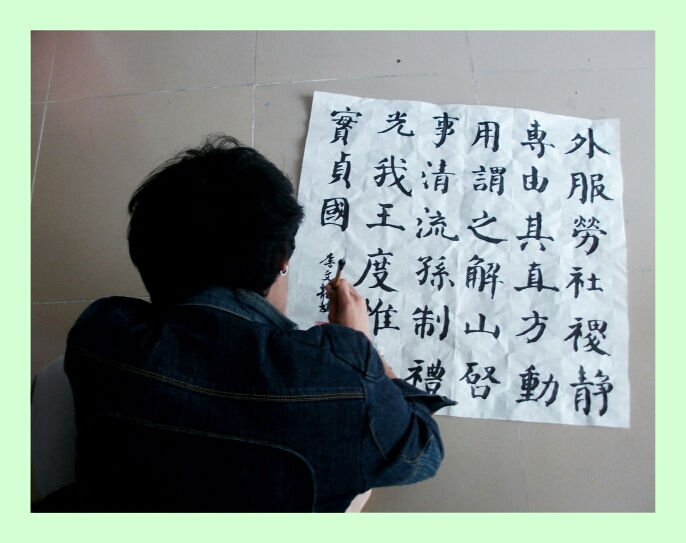 外服勞社禝静
專由其直方動
用謂之解山啓
事清流孫制禮
光我王度惟
實貞國
李文